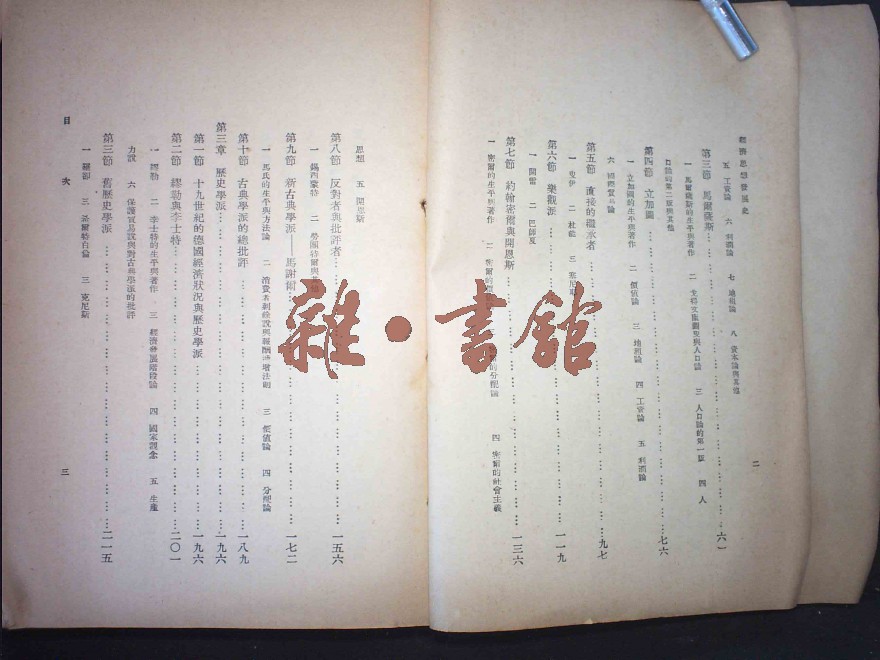 經濟思想發展史
五 工資論 六 利潤論 七 地租論 八 資本論與其他
第三節 馬爾薩斯……六一
一 馬爾薩斯的生平與著作 三 人口論的第一版 四 人
口論的第二版與其他
第四節 立加圖……七六
一 立加圖的生平與著作 二 價值論 三 地租論 四 工資論 五 利潤論
六 國際貿易論
第五節 直接的繼承者……九七
一 曳伊 二 杜能 三
第六節 樂觀派……一一九
一 開雷 二 巴師夏
第七節 約翰密爾與開恩斯……一三六
一 密爾的生平與著作 二 密爾的 的分配論 四 密爾的社會主義
二
思想 五 開恩斯
第八節 反對者與批評者……一五六
一 錫西蒙特 二 勞國特爾與
第九節 新古典學派——馬謝爾……一七二
一 馬氏的生平與方法論 二 消費者剩餘說與報酬 增法則 三 價值論 四 分配論
第十節 古典學派的總批評……一八九
第三章 歷史學派……一九六
第一節 十九世紀的德國經濟狀況與歷史學派……一九六
第二節 繆勒與李士特……二〇一
一 繆勒 二 李士特的生平與著作 三 經濟發展階段論 四 國家觀念 五 生產
力說 六 保護貿易說與對古典學派的批評
第三節 舊歷史學派……二一五
一 羅部 三 希爾特白倫 三 克尼斯
目 次 三
雜·書館